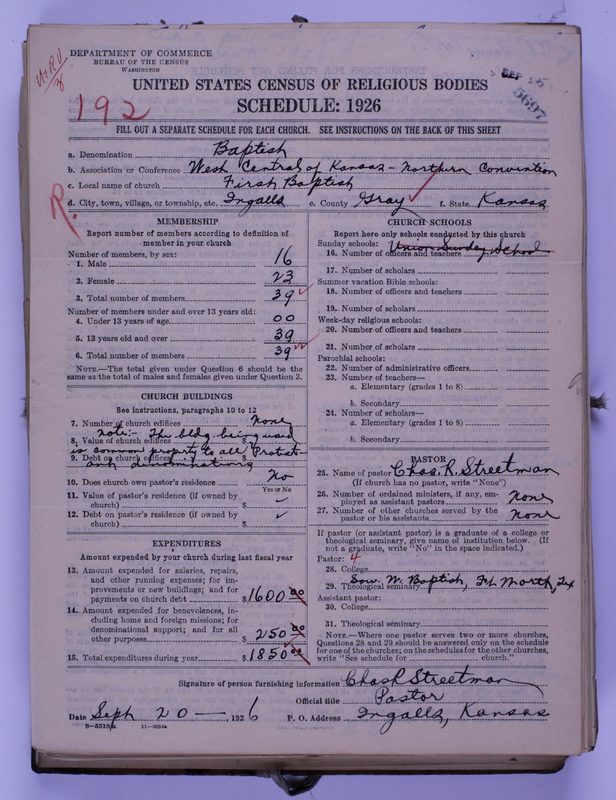 DEPARTMENT OF COMMERCE
BUREAU OF THE CENSUS
WASHINGTON
192
SEP
5697
UNITED STATES CENSUS OF RELIGIOUS BODIES
SCHEDULE: 1926
FILL OUT A SEPARATE SCHEDULE FOR EACH CHURCH. SEE INSTRUCTIONS ON THE BACK OF THIS SHEET
a. Denomination Baptist
b. Association or Conference West Central of Kansas - Northern Convention
c. Local name of church First Baptist
R.
d. City, town, village, or township, etc. Ingalls e. County Gray f. State Kansas
MEMBERSHIP
Report number of members according to definition of member in your church
Number of members, by sex:
1. Male 16
2. Female 23
3. Total number of members 39
Number of members under and over 13 years old:
4. Under 13 years of age 00
5. 13 years old and over 39
6. Total number of members 39
NOTE.—The total given under Question 6 should be the same as the total of males and females given under Question 3.
CHURCH BUILDINGS
See instructions, paragraphs 10 to 12
7. Number of church edifices None
Note:- The bldg being used
8. Value of church edifices $
is common property to all Protest-
9. Debt on church edifices $
ant denominations
10. Does church own pastor's residence No
Yes or No
11. Value of pastor's residence (if owned by church) $
12. Debt on pastor's residence (if owned by church) $
EXPENDITURES
Amount expended by your church during last fiscal year
13. Amount expended for salaries, repairs, and other running expenses; for improvements or new buildings; and for payments on church debt $1600 00
14. Amount expended for benevolences, including home and foreign missions; for denominational support; and for all other purposes $ 250 00
15. Total expenditures during year $1850 00
CHURCH SCHOOLS
Report here only schools conducted by this church
Sunday schools: Union Sunday School
16. Number of officers and teachers
17. Number of scholars
Summer vacation Bible schools:
18. Number of officers and teachers
19. Number of scholars
Week-day religious schools:
20. Number of officers and teachers
21. Number of scholars
Parochial schools:
22. Number of administrative officers
23. Number of teachers—
a. Elementary (grades 1 to 8)
b. Secondary
24. Number of scholars—
a. Elementary (grades 1 to 8)
b. Secondary
PASTOR
25. Name of pastor Chas. R. Streetman
(If church has no pastor, write "None")
26. Number of ordained ministers, if any, employed as assistant pastors None
27. Number of other churches served by the pastor or his assistants None
If pastor (or assistant pastor) is a graduate of a college or theological seminary, give name of institution below. (If not a graduate, write "No" in the space indicated.)
Pastor: 4
28. College
29. Theological seminary Sow. W. Baptist, Ft Worth, Tex
Assistant pastor:
30. College
31. Theological seminary
NOTE.—Where one pastor serves two or more churches, Questions 28 and 29 should be answered only on the schedule for one of the churches; on the schedules for the other churches, write "See schedule for church."
Signature of person furnishing information Chas R Streetman
Official title Pastor
Date Sept 20 — , 1926 P. O. Address Ingalls, Kansas